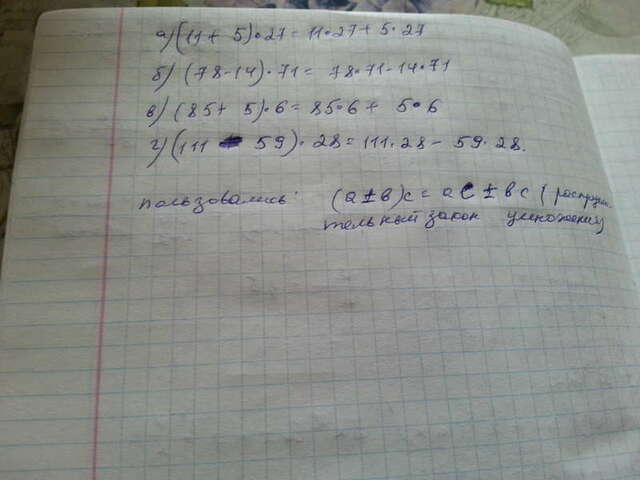 а) (11 + 5)·27 = 11·27 + 5·27
б) (78 - 14)·71 = 78·71 - 14·71
в) (85 + 5)·6 = 85·6 + 5·6
г) (111 - 59)·28 = 111·28 - 59·28.
пользовались: (а ± в)с = ас ± вс (распреде-
тельный закон умножения)